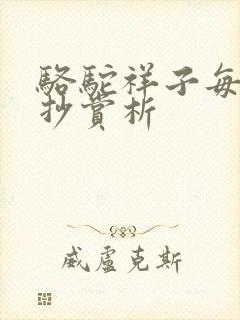 駱駝祥子每
抄賞析
威盧克斯